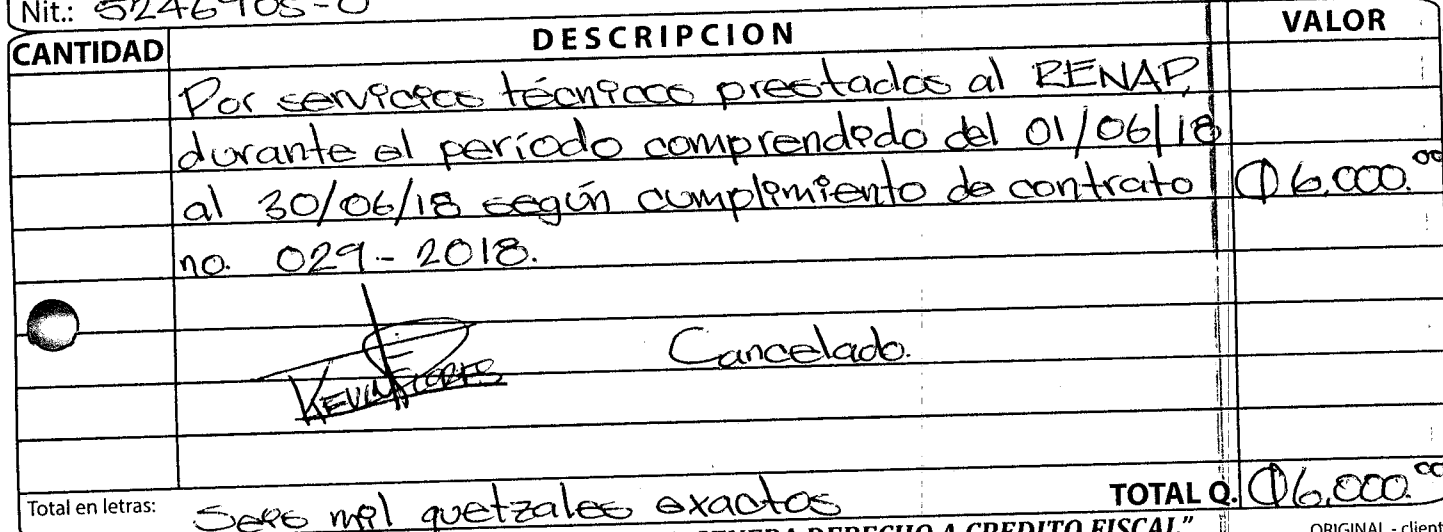 Nit.: 5246905-0
CANTIDAD DESCRIPCION VALOR
Por servicios técnicos prestados al RENAP,
durante el período comprendido del 01/06/18
al 30/06/18 según cumplimiento de contrato Q 6,000.00
no. 029-2018.
Cancelado.
KEVIN FLORES
Total en letras: Seis mil quetzales exactos TOTAL Q. Q 6,000.00
DERECHO A CREDITO FISCAL" ORIGINAL - client